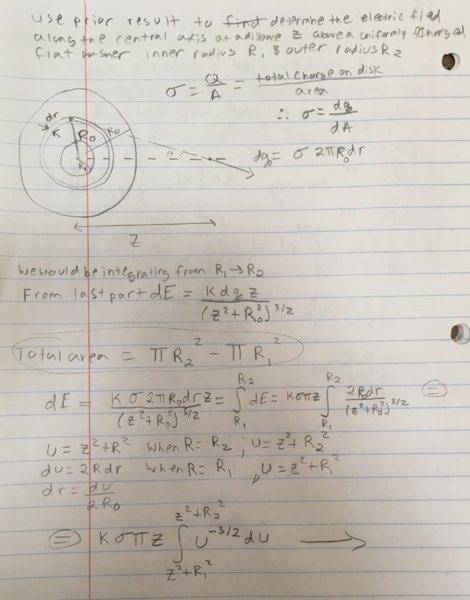 use prior result to find determine the electric field
along the central axis at a distance z above a uniformly charged
flat washer inner radius R, & outer radius R2
σ = Q/A = total charge on disk/area
∴ σ = dq/dA
dr
R0
R0
R1
θ
dq = σ 2πR0dr
Z
we would be integrating from R1 → R2
From last part dE = K dq z/(z²+R0²)^3/2
Total area = πR2² - πR1²
dE = K σ 2πR0dr z/(z²+R0²)^3/2 = ∫_R1^R2 dE = Kσπz ∫_R1^R2 2R0dr/(z²+R0²)^3/2 =
U = z²+R² when R = R2 ; U = z²+R2²
du = 2Rdr when R = R1 , U = z²+R1²
dr = du/2R0
= Kσπz ∫_z²+R1²^z²+R2² U^-3/2 dU →